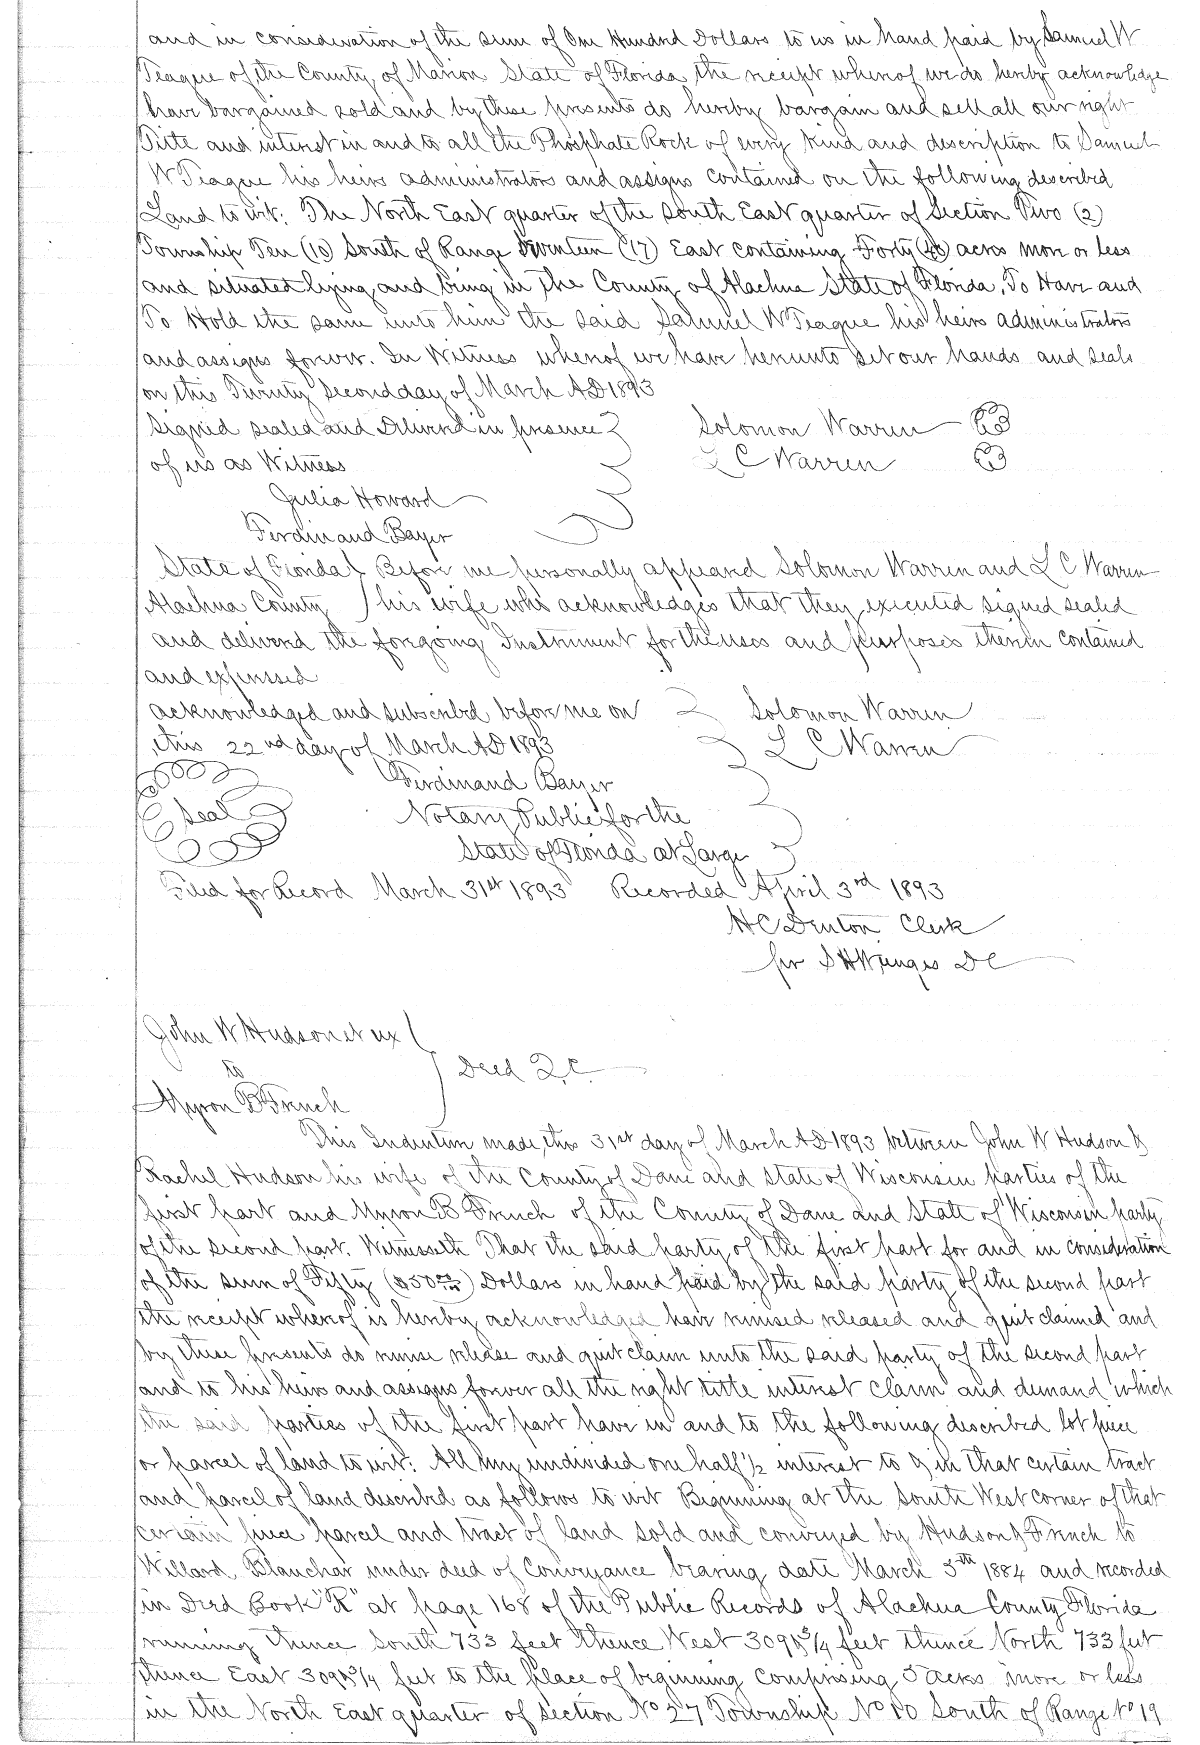 and in consideration of the sum of One Hundred Dollars to us in hand paid by Samuel W
Teague of the County of Marion State of Florida the receipt whereof we do hereby acknowledge
have bargained sold and by these presents do hereby bargain and sell all our right
Title and interest in and to all the Phosphate Rock of every kind and description to Samuel
W Teague his heirs administrators and assigns contained on the following described
Land to wit: The North East quarter of the South East quarter of Section Two (2)
Township Ten (10) South of Range Seventeen (17) East containing Forty (40) acres more or less
and situated lying and being in the County of Alachua State of Florida. To Have and
To Hold the same unto him the said Samuel W Teague his heirs administrators
and assigns forever. In Witness whereof we have hereunto set our hands and seals
on this Twenty Second day of March AD 1893
Signed sealed and Delivered in presence
Solomon Warren
of us as Witness
L C Warren
Julia Howard
Ferdinand Bayer
State of Florida } Before me personally appeared Solomon Warren and L C Warren
Alachua County } his wife who acknowledges that they executed signed sealed
and delivered the foregoing Instrument for the uses and purposes therein contained
and expressed
acknowledged and subscribed before me on
Solomon Warren
this 22nd day of March AD 1893
L C Warren
Ferdinand Bayer
Seal
Notary Public for the
State of Florida at Large
Filed for Record March 31st 1893 Recorded April 3rd 1893
H C Denton Clerk
per S H Wienges DC
John W Hudson et ux
to
Deed Q.C.
Myron B French
This Indenture made, this 31st day of March AD 1893 between John W Hudson &
Rachel Hudson his wife of the County of Dane and State of Wisconsin parties of the
first part and Myron B French of the County of Dane and State of Wisconsin party
of the second part. Witnesseth That the said party of the first part for and in consideration
of the sum of Fifty ($50 00/100) Dollars in hand paid by the said party of the second part
the receipt whereof is hereby acknowledged have remised released and quit claimed and
by these presents do remise release and quit claim unto the said party of the second part
and to his heirs and assigns forever all the right title interest claim and demand which
the said parties of the first part have in and to the following described lot piece
or parcel of land to wit: All my undivided one half 1/2 interest to & in that certain tract
and parcel of land described as follows to wit Beginning at the South West corner of that
certain piece parcel and tract of land sold and conveyed by Hudson & French to
Willard Blanchar under deed of Conveyance bearing date March 5th 1884 and recorded
in Deed Book "R" at page 168 of the Public Records of Alachua County Florida
running thence South 733 feet thence West feet thence North 733 feet
thence East feet to the place of beginning comprising 5 acres more or less
in the North East quarter of Section No 27 Township No 10 South of Range No 19